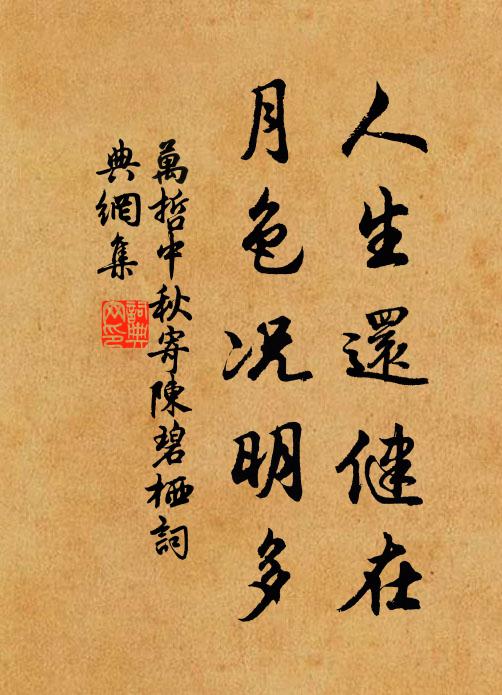 人生還健在
月色況明多
萬哲中秋寄陳碧栖詞
典網集
詞典
网印